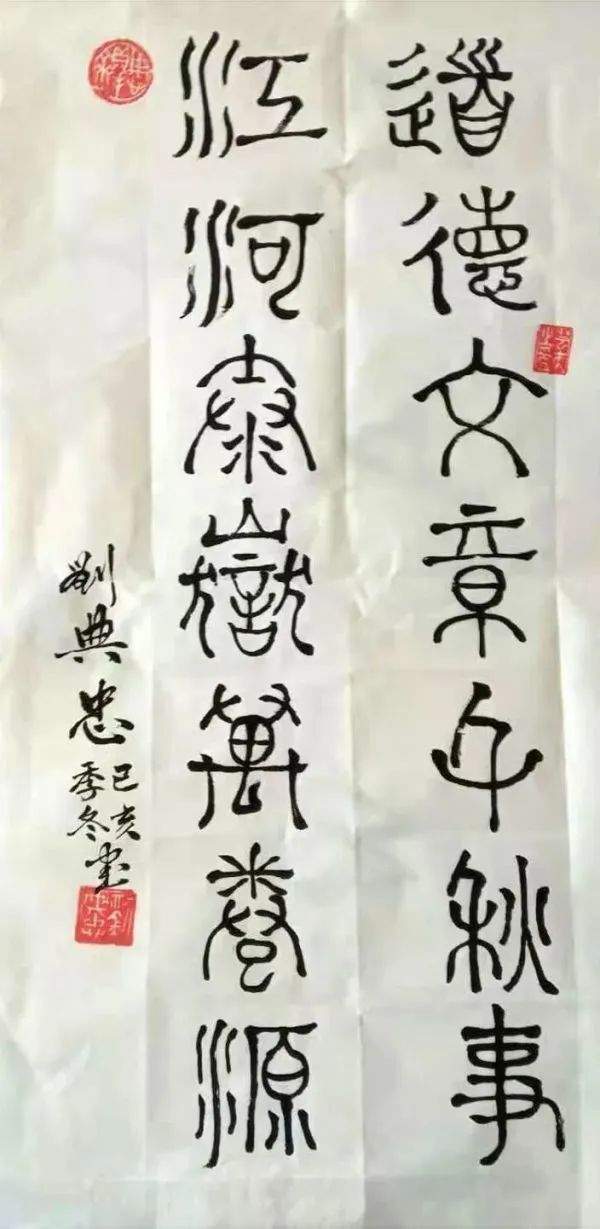 道德文章千秋事
江河泰嶽萬卷源
劉典忠
己亥
季冬書